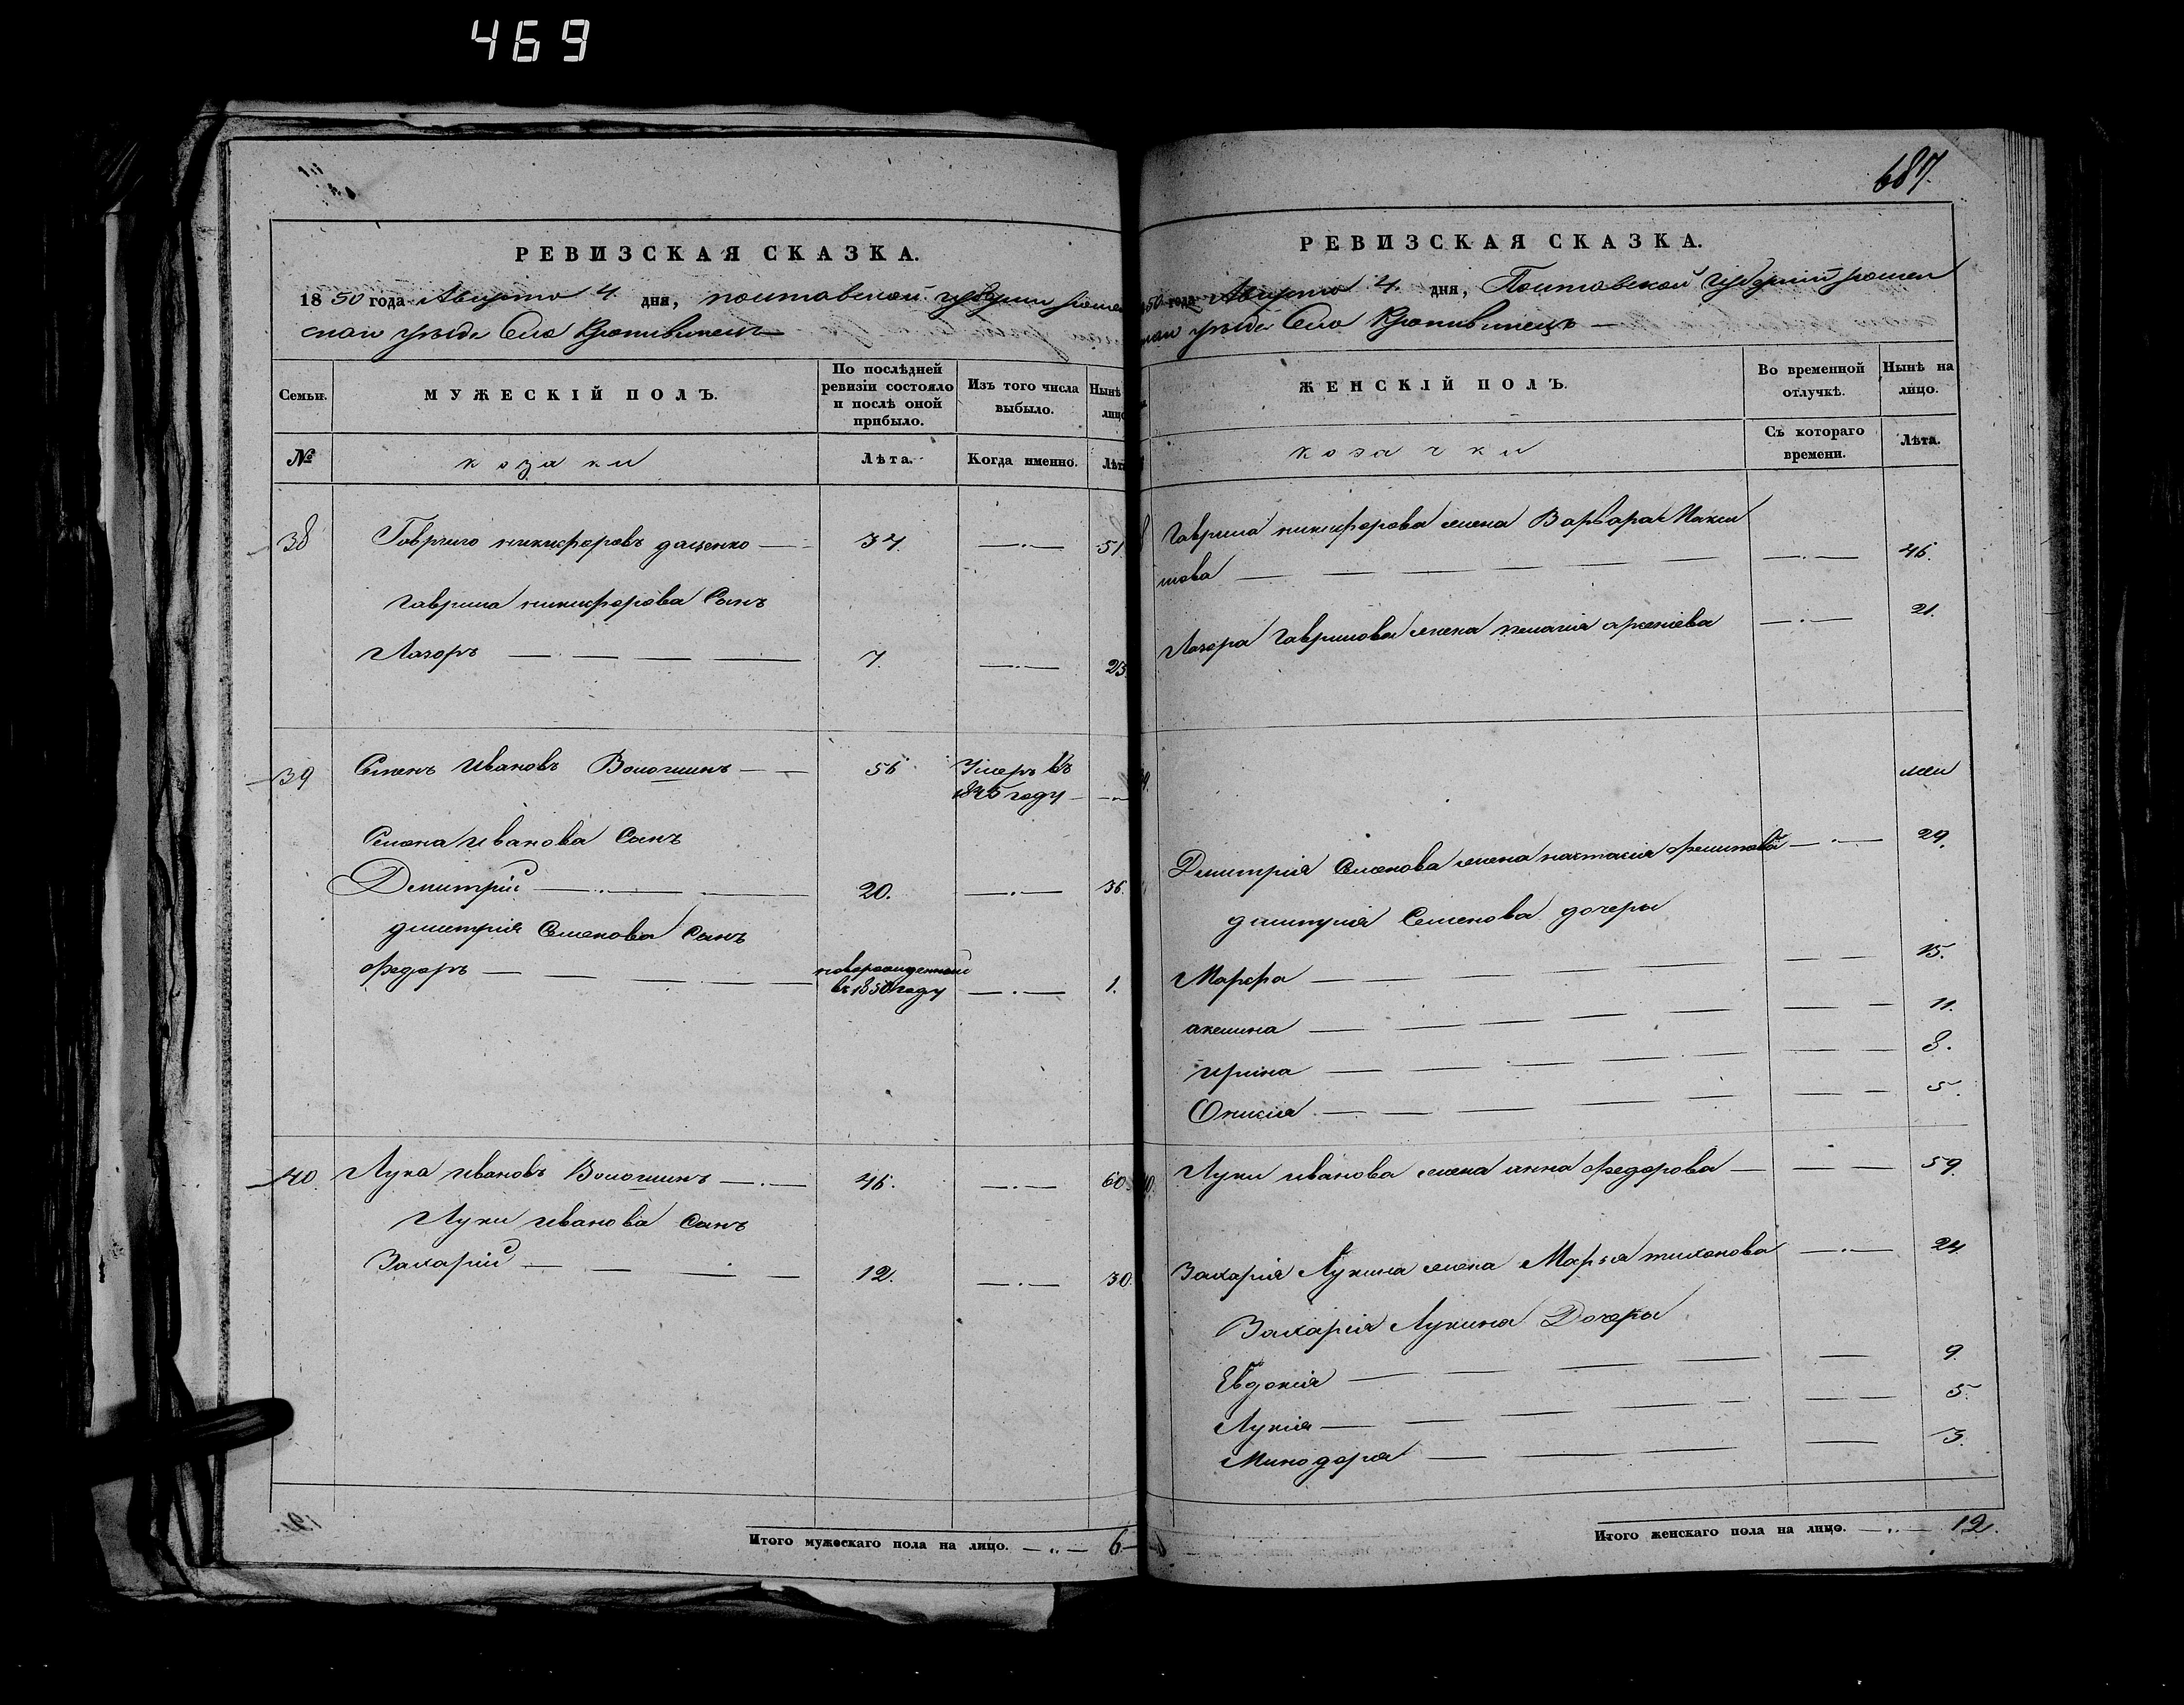 469
РЕВИЗСКАЯ СКАЗКА.
1850 года Августа 4 дня, полтавской губернии
уезде Село Кропивинецъ
Семьи.
МУЖЕСКІЙ ПОЛЪ.
По послѣдней
ревизіи состояло
и послѣ оной
прибыло.
Изъ того числа
выбыло.
Нынѣ
лицо
№
козаки
Лѣта.
Когда именно.
Лѣт
38 Гаврило никифоровъ даценко 34. 51
гаврила никифорова Сынъ
Лазоръ 7. 23.
39 Семенъ Ивановъ Вологшинъ 56 Умеръ въ
1845 году
Семена иванова Сынъ
Дмитрій 20. 36.
дмитрія Семенова Сынъ
федоръ новорожденный
въ 1850 году 1.
40. Лука ивановъ Вологшинъ 46. 60
Луки иванова Сынъ
Захарій 12. 30.
Итого мужескаго пола на лицо. 6
687.
РЕВИЗСКАЯ СКАЗКА.
50 года Августа 4 дня, Полтавской губерніи
уезде Село Кропивинецъ
ЖЕНСКІЙ ПОЛЪ.
Во временной
отлучкѣ.
Нынѣ на
лицо.
козачки
Съ котораго
времени.
Лѣта.
Гаврила никифорова жена Варвара Макси
мова 46.
Лазора Гаврилова жена пелагія арсеніева 21.
Дмитрія Семенова жена настасія филипова 29.
дмитрія Семенова дочеры
Марфа 15.
акелина 11.
ирина 8.
Онисія 5.
Луки иванова жена анна федорова 59.
Захарія Лукина жена Марья тихонова 24
Захарія Лукина Дочеры
Евдокія 9.
Лукія 5.
Минодора 3.
Итого женскаго пола на лицо. 12.